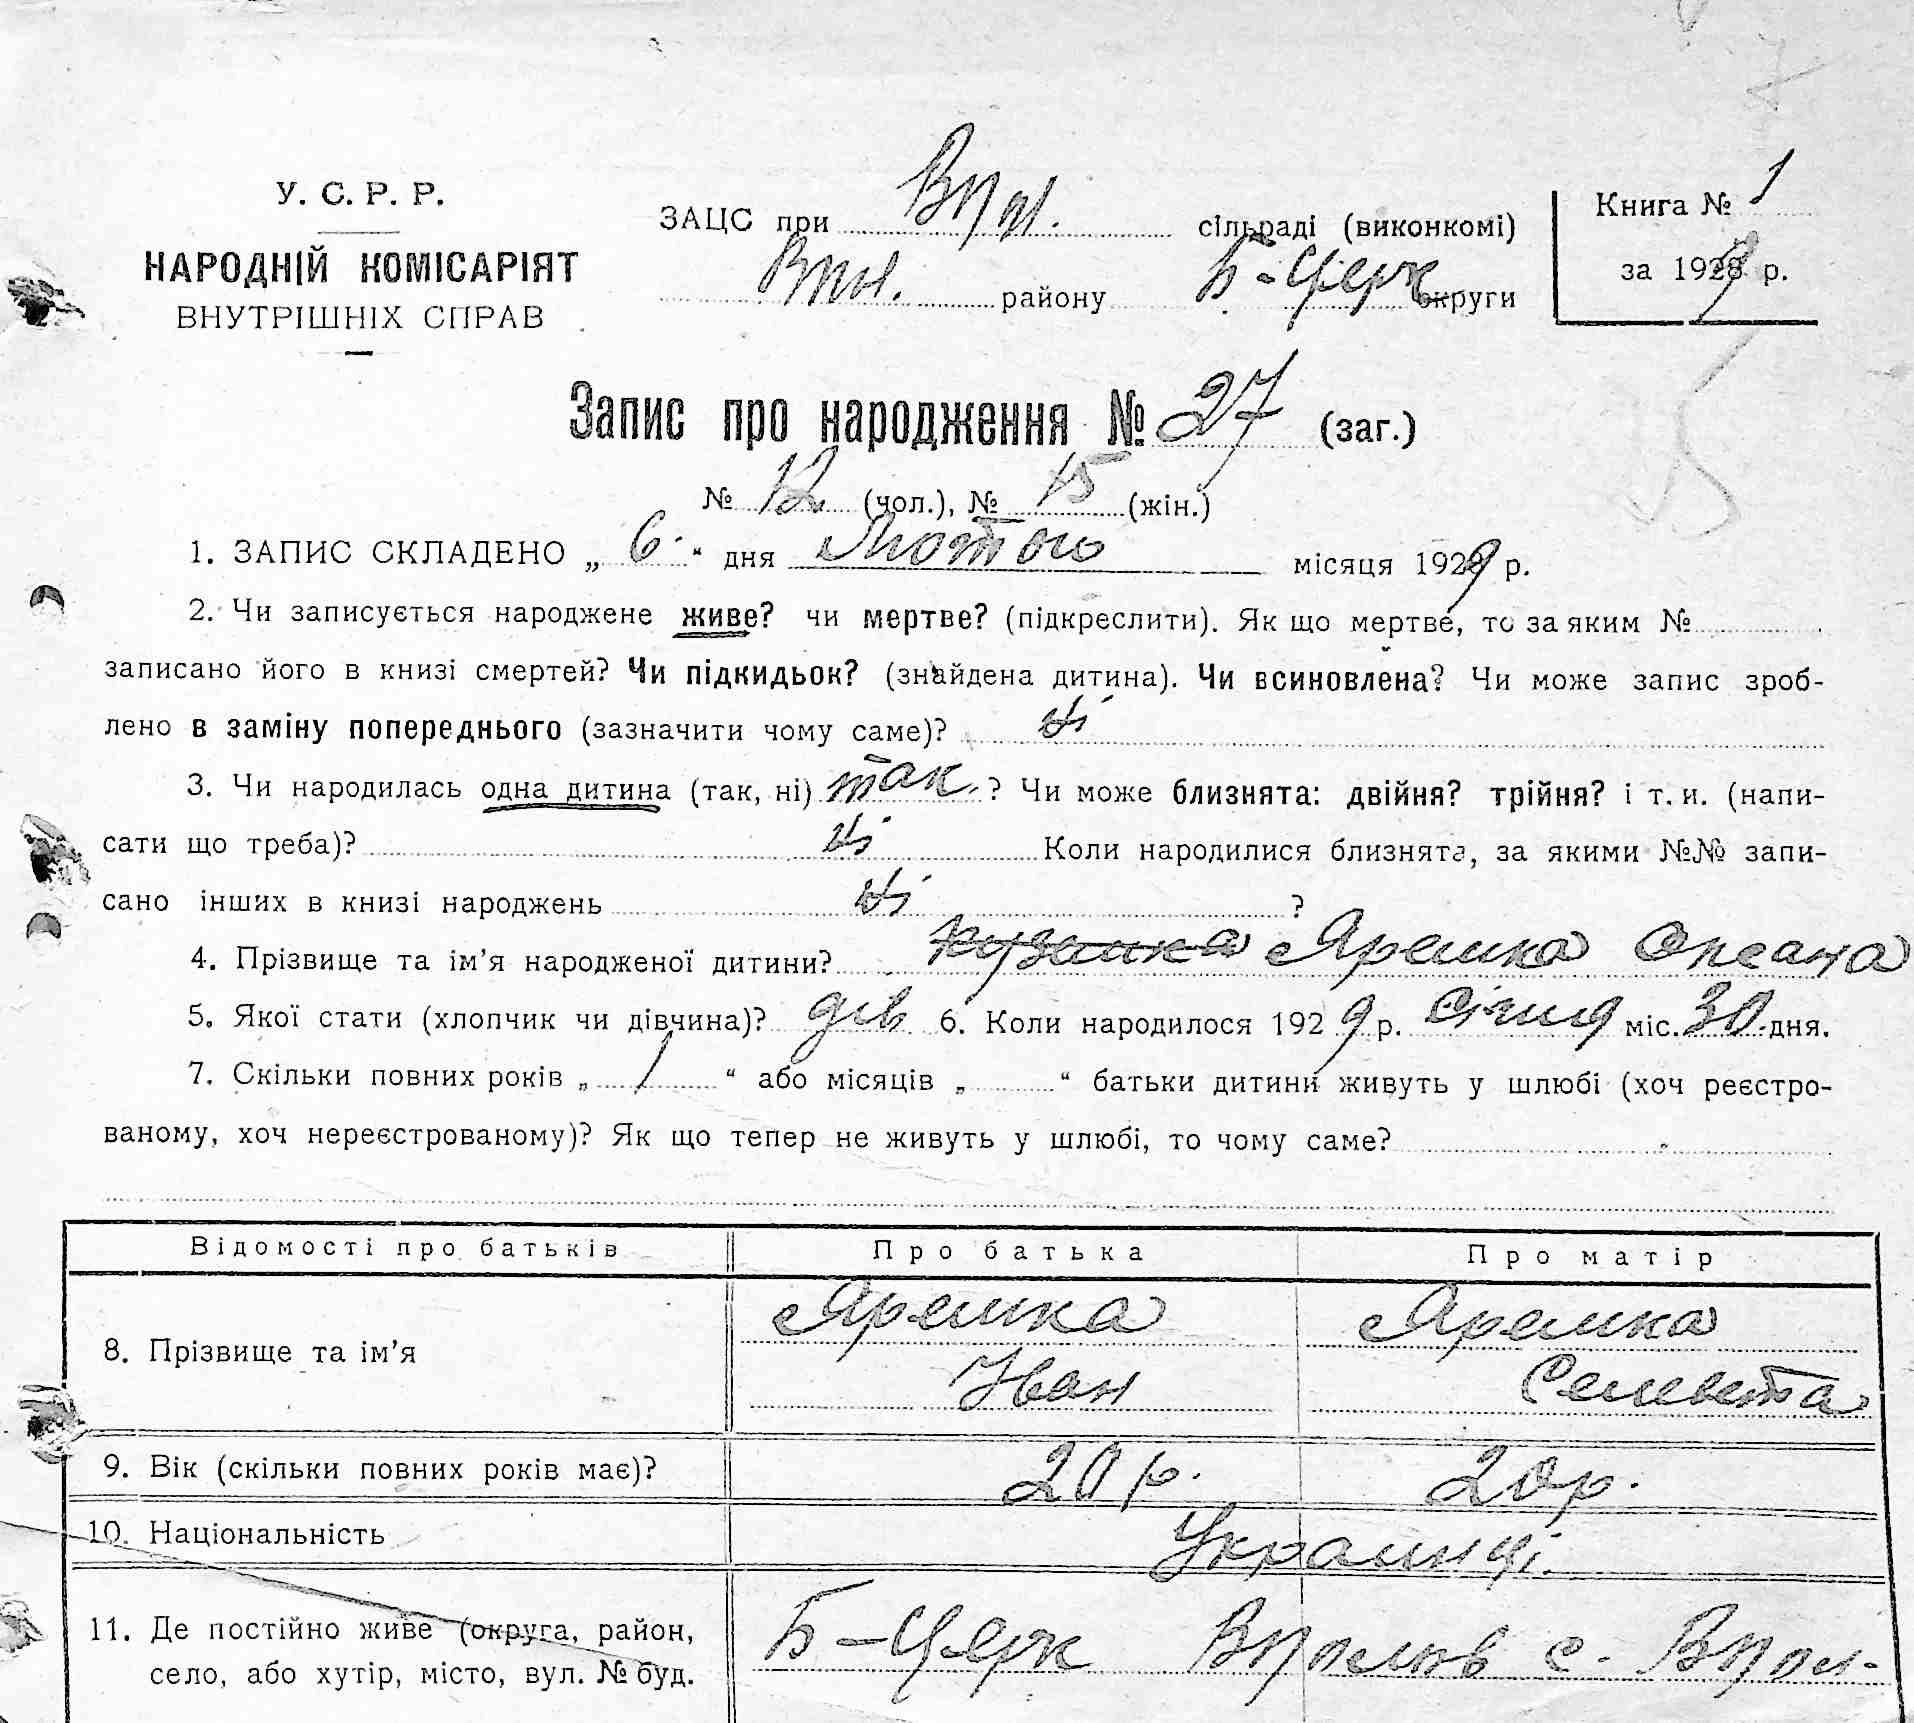 У. С. Р. Р.
НАРОДНІЙ КОМІСАРІЯТ
ВНУТРІШНІХ СПРАВ
ЗАЦС при сільраді (виконкомі)
району Б-Церк округи
Книга № 1
за 1929 р.
Запис про народження № 27 (заг.)
№ 12 (чол.), № 15 (жін.)
1. ЗАПИС СКЛАДЕНО „ 6 “ дня Лютого місяця 1929 р.
2. Чи записується народжене живе? чи мертве? (підкреслити). Як що мертве, то за яким №
записано його в книзі смертей? Чи підкидьок? (знайдена дитина). Чи всиновлена? Чи може запис зроб-
лено в заміну попереднього (зазначити чому саме)? ні
3. Чи народилась одна дитина (так, ні) так. ? Чи може близнята: двійня? трійня? і т. и. (напи-
сати що треба)? ні Коли народилися близнята, за якими №№ запи-
сано інших в книзі народжень ні ?
4. Прізвище та ім’я народженої дитини? Яремка Оксана
5. Якої стати (хлопчик чи дівчина)? дів 6. Коли народилося 1929 р. Січня міс. 30 дня.
7. Скільки повних років „ 1 “ або місяців „ “ батьки дитини живуть у шлюбі (хоч реєстро-
ваному, хоч нереєстрованому)? Як що тепер не живуть у шлюбі, то чому саме?
Відомості про батьків Про батька Про матір
8. Прізвище та ім’я Яремка Яремка
Іван
9. Вік (скільки повних років має)? 20 р. 20 р.
10. Національність Украинці.
11. Де постійно живе (округа, район, Б-Церк
село, або хутір, місто, вул. № буд. с.